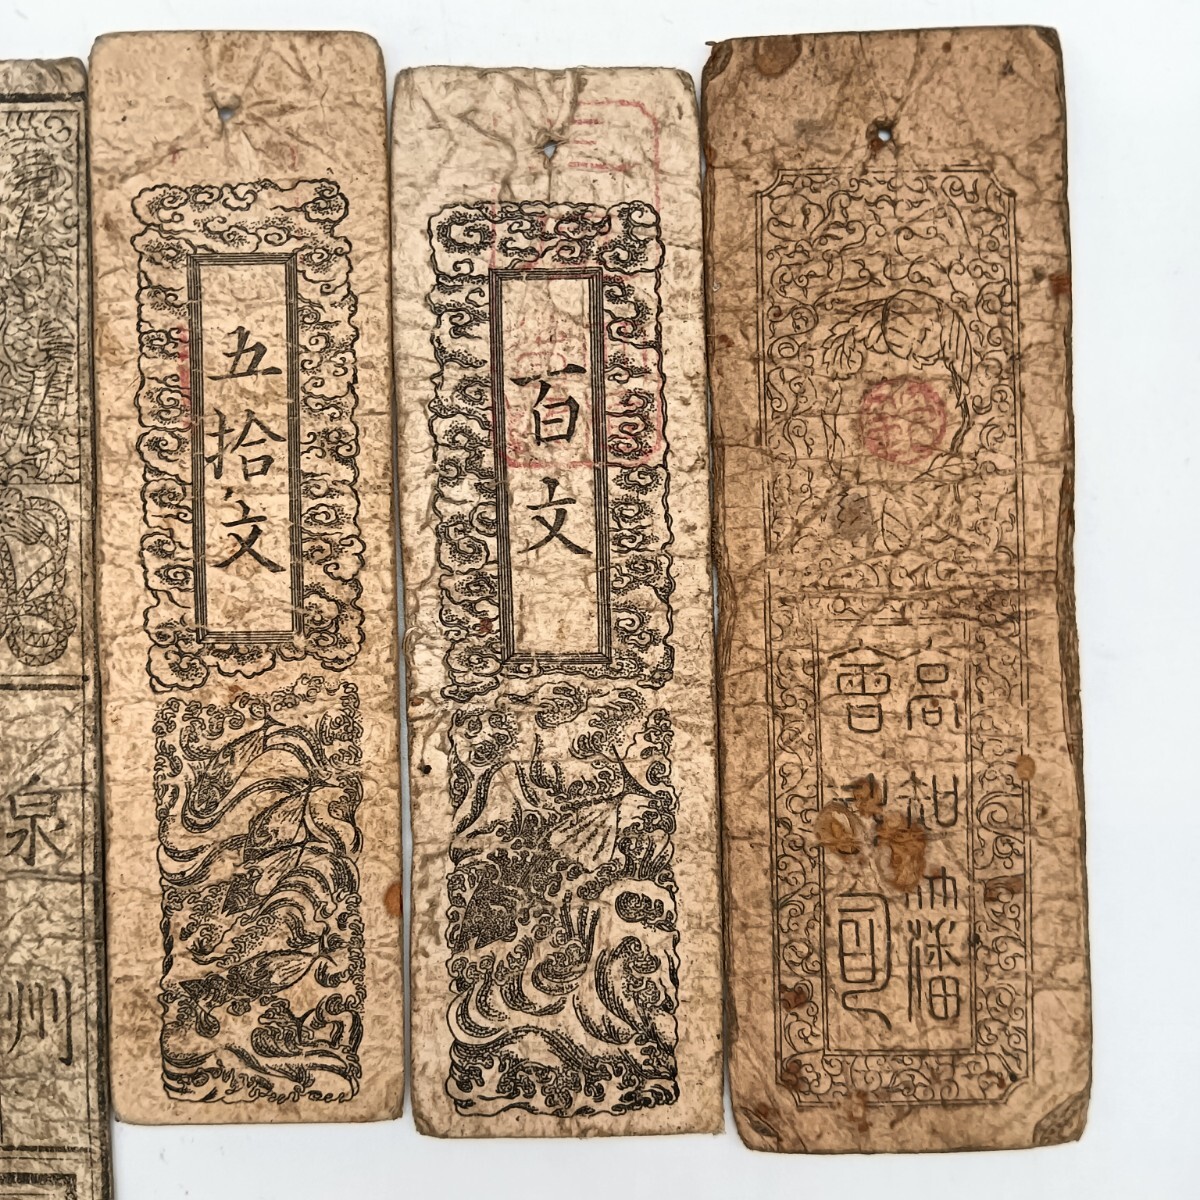 泉州
五拾文
百文
高知藩
會計局